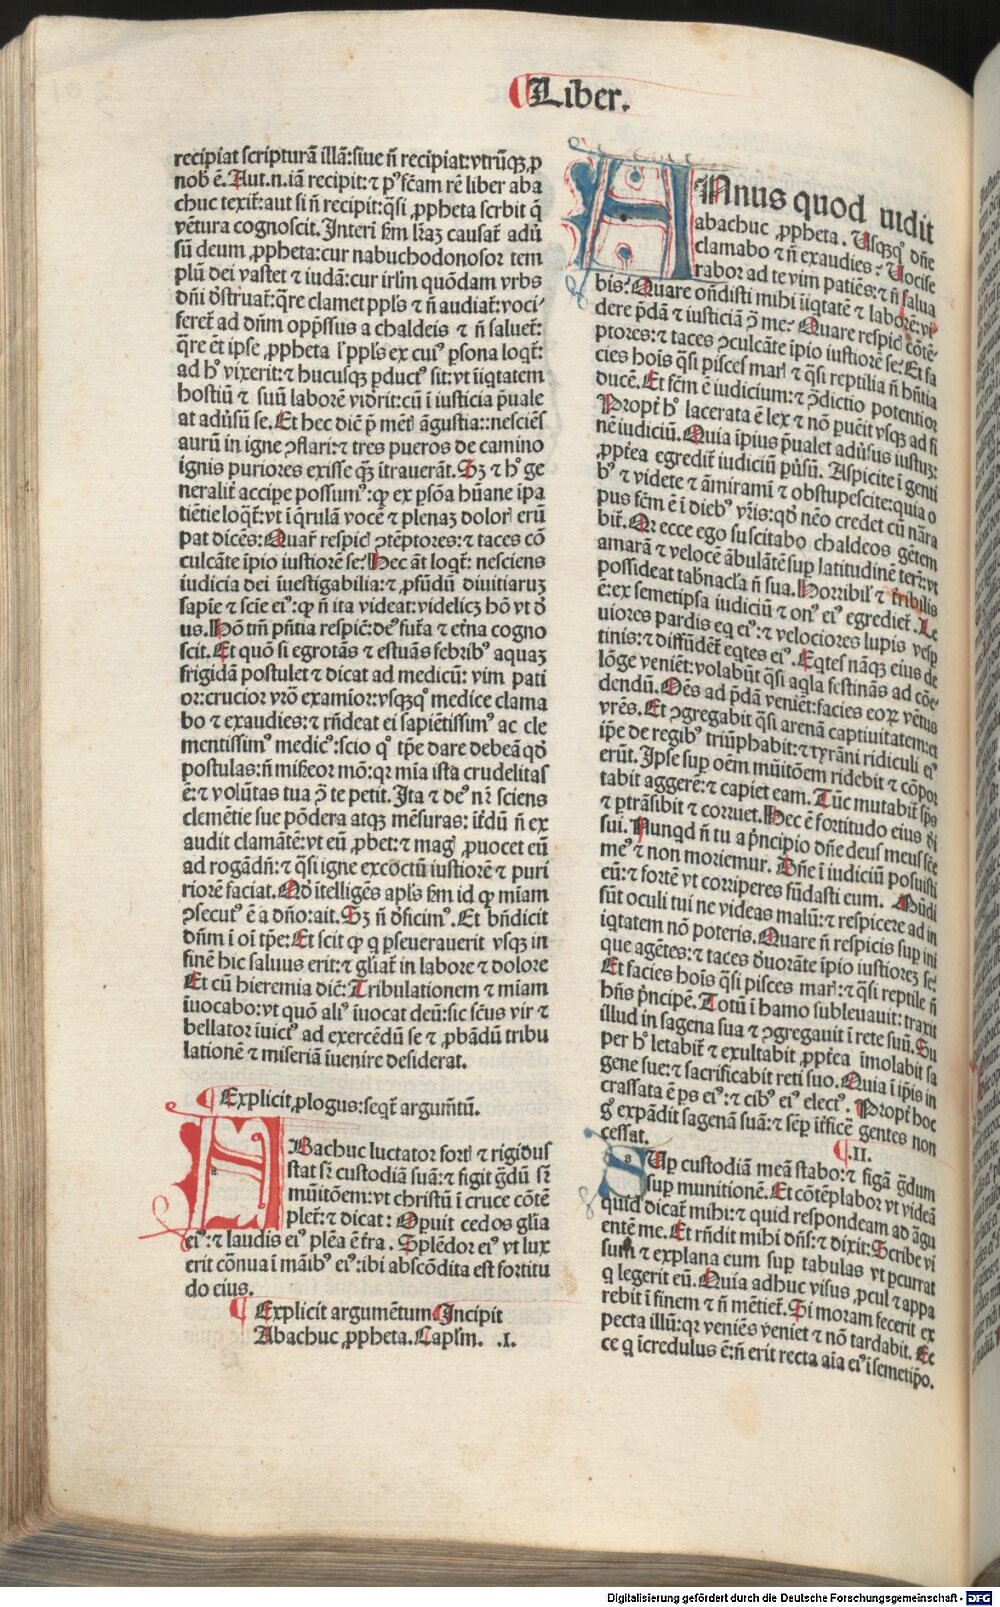 Liber.
recipiat scripturã illã:siue ñ recipiat:vtrũqꝫ ꝓ
nob̾ ẽ. Aut.n.iã recipit: ⁊ pꝰ fc̃am rẽ liber aba
chuc texit̃:aut si ñ recipit:q̃si ꝓpheta scrbit q̃
vẽtura cognoscit. Interi s̃m l̃raꝫ causat̃ adũ
sũ deum ꝓpheta:cur nabuchodonosor tem
plũ dei vastet ⁊ iudã:cur irl̃m quõdam vrbs
dñi d̾struat̃:q̃re clamet ppl̃s ⁊ ñ audiat̃:voci⸗
feret̃ ad dñm opp̃ssus a chaldeis ⁊ ñ saluet̃:
q̃re ẽt ipse ꝓpheta l̾ ppl̃s ex cuiꝰ p̱sona loqt̃:
ad hꝰ vixerit:⁊ hucusqꝫ ꝑductꝰ sit:vt ĩiq̃tatem
hostiũ ⁊ suũ laborẽ vid̾rit:cũ ĩ iusticia p̃uale
at adũsũ se. Et hec dic̃ p̃ mẽt̃ ãgustia::nesciẽs
aurũ in igne ꝯflari:⁊ tres pueros de camino
ignis puriores exisse qꝫ̃ ĩtrauerãt. Sꝫ ⁊ hꝰ ge
neralit̃ accipe possumꝰ:qꝙ ex ꝑsõa hũane ĩpa
tiẽtie loqt̃:vt ĩ q̃rulã vocẽ ⁊ plenaꝫ dolor̃ erũ
pat dicẽs:Quar̃ respic̃ ꝯtẽptores:⁊ taces cõ
culcãte ĩpio iustiorẽ se? Hec ãt loqt̃: nesciens
iudicia dei ĩuestigabilia:⁊ ꝓfũdũ diuitiaruꝫ
sapiẽ ⁊ sciẽ eiꝰ:qꝙ ñ ita videat:videlicꝫ hõ vt d̾
us. Hõ tm̃ p̃ntia respic̃:deꝰ fut̃a ⁊ et̃na cogno
scit. Et quõ si egrotãs ⁊ estuãs febribꝰ aquaꝫ
frigidã postulet ⁊ dicat ad medicũ: vim pati
or:crucior vr̃o examior:vsqꝫqꝰ medice clama
bo ⁊ exaudies:⁊ rñdeat ei sapiẽtissimꝰ ac cle
mentissimꝰ medicꝰ:scio qꝰ tp̃e dare debeã qd̾
postulas:ñ miꝫeor mõ:qꝛ mĩa ista crudelitas
ẽ:⁊ volũtas tua ꝯ̃ te petit. Ita ⁊ deꝰ nr̃ sciens
clemẽtie sue põdera atqꝫ mẽsuras: ĩt̃dũ ñ ex
audit clamãtẽ:vt eũ ꝓbet:⁊ mag̃ ꝓuocet eũ
ad rogãdñ:⁊ q̃si igne excoctũ iustiorẽ ⁊ puri
riorẽ faciat. Qd̾ ĩtelligẽs apl̃s s̃m id qꝙ mĩam
ꝯsecutꝰ ẽ a dño:ait. Sꝫ ñ d̾ficimꝰ. Et bñdicit
dñm ĩ oĩ tp̃e:Et scit qꝙ q ꝑseuerauerit vsqꝫ in
finẽ hic saluus erit:⁊ gl̃iat̃ in labore ⁊ dolore
Et cũ hieremia dic̃: Tribulationem ⁊ mĩam
ĩuocabo:vt quõ aliꝰ ĩuocat deũ:sic sc̃us vir ⁊
bellator ĩuictꝰ ad exercẽdũ se ⁊ ꝓbãdũ tribu
lationẽ ⁊ miseriã ĩuenire desiderat.
Explicit ꝓlogus:seqt̃ argum̃tũ.
ABachuc luctator fort̃ ⁊ rigidus
stat sr̃ custodiã suã:⁊ figit g̃dũ sr̃
mũitõem:vt christũ ĩ cruce cõtẽ
plet̃:⁊ dicat: Opuit celos gl̃ia
eiꝰ:⁊ laudis eiꝰ plẽa ẽ t̃ra. Splẽdor eiꝰ vt lux
erit cõnua ĩ mãibꝰ eiꝰ:ibi abscõdita est fortitu
do eius.
Explicit argumẽtum Incipit
Abachuc ꝓpheta. Capl̃m. .I.
ANnus quod uidit
abachuc ꝓpheta. Usqꝫqꝰ dñe
clamabo ⁊ ñ exaudies? Uocife
rabor ad te vim patiẽs:⁊ ñ salua
bis? Quare oñdisti mihi ĩiq̃tatẽ ⁊ laborẽ:vi
dere p̃dã ⁊ iusticiã ꝯ̃ me? Quare respic̃ cõtẽ⸗
ptores:⁊ taces ꝯculcãte ĩpio iustiorẽ se? Et fa
cies hoĩs q̃si pisces mar̃ ⁊ q̃si reptilia ñ hñtia
ducẽ. Et fc̃m ẽ iudicium:⁊ ꝯ̃dictio potentior
Propt̃ hꝰ lacerata ẽ lex ⁊ nõ puẽit vsqꝫ ad fi
nẽ iudiciũ. Quia ĩpius p̃ualet adũsus iustuꝫ:
ꝓpt̃ea egredit̃ iudiciũ ꝑũsũ. Aspicite ĩ genti
bꝰ ⁊ videte ⁊ ãmiramĩ ⁊ obstupescite:quia o
pus fc̃m ẽ ĩ diebꝰ vr̃is:qd̾ nẽo credet cũ nãra
bit̃. Qꝛ ecce ego suscitabo chaldeos gẽtem
amarã ⁊ velocẽ ãbulãtẽ sup̱ latitudinẽ terr̃:vt
possideat tab̃nacl̃a ñ sua. Horribil̃ ⁊ t̃ribilis
ẽ:ex semetipsa iudiciũ ⁊ onꝰ eiꝰ egrediet̃. Le
uiores pardis eq̃ eiꝰ:⁊ velociores lupis vesp̱
tinis:⁊ diffũdẽt̃ eq̃tes eiꝰ. Eq̃tes nãqꝫ eius de
lõge veniẽt:volabũt q̃si aq̃la festinãs ad cõe⸗
dendũ. Oẽs ad p̃dã veniẽt:facies eoꝝ vẽtus
vrẽs. Et ꝯgregabit q̃si arenã captiuitatem:et
ip̃e de regibꝰ triũphabit:⁊ tyrãni ridiculi eiꝰ
erũt. Ipse sup̱ oẽm mũitõem ridebit ⁊ cõpor
tabit aggerẽ:⁊ capiet eam. Tũc mutabit̃ sp̃s
⁊ ꝑtrãsibit ⁊ corruet. Hec ẽ fortitudo eius d̾i
sui. Nunqd ñ tu a p̃ncipio dñe deus meus sc̃e
meꝰ ⁊ non moriemur. Dñe ĩ iudiciũ posuisti
eũ:⁊ fortẽ vt corriperes fũdasti eum. Mũdi
sũt oculi tui ne videas malũ:⁊ respicere ad in
iq̃tatem nõ poteris. Quare ñ respicis sup̱ ini
que agẽtes:⁊ taces d̾uorãte ĩpio iustioreꝫ se?
Et facies hoĩs q̃si pisces mar̃:⁊ q̃si reptile ñ
hñs p̃ncipẽ. Totũ ĩ hamo subleuauit: traxit
illud in sagena sua ⁊ ꝯgregauit ĩ rete suũ. Su
per hꝰ letabit̃ ⁊ exultabit ꝓpt̃ea ĩmolabit sa
gene sue:⁊ sacrificabit reti suo. Quia ĩ ip̃is in
crassata ẽ ps eiꝰ:⁊ cibꝰ eiꝰ electꝰ. Propt̃ hoc
gꝰ expãdit sagenã suã:⁊ sẽp̱ ĩt̃ficẽ gentes non
cessat. .II.
SUp̱ custodiã meã stabo:⁊ figã g̃dum
sup̱ munitionẽ. Et cõtẽplabor vt videã
quid dicat̃ mihi:⁊ quid respondeam ad ãgu
entẽ me. Et rñdit mihi dñs:⁊ dixit: Scribe vi
sum ⁊ explana eum sup̱ tabulas vt ꝑcurrat
q legerit eũ. Quia adhuc visus ꝓcul ⁊ appa
rebit ĩ finem ⁊ ñ mẽtiet̃. Si moram fecerit ex
pecta illũ:qꝛ veniẽs veniet ⁊ nõ tardabit. Ec
ce q ĩcredulus ẽ:ñ erit recta aĩa eiꝰ ĩ semetip̃o.
Digitalisierung gefördert durch die Deutsche Forschungsgemeinschaft - DFG